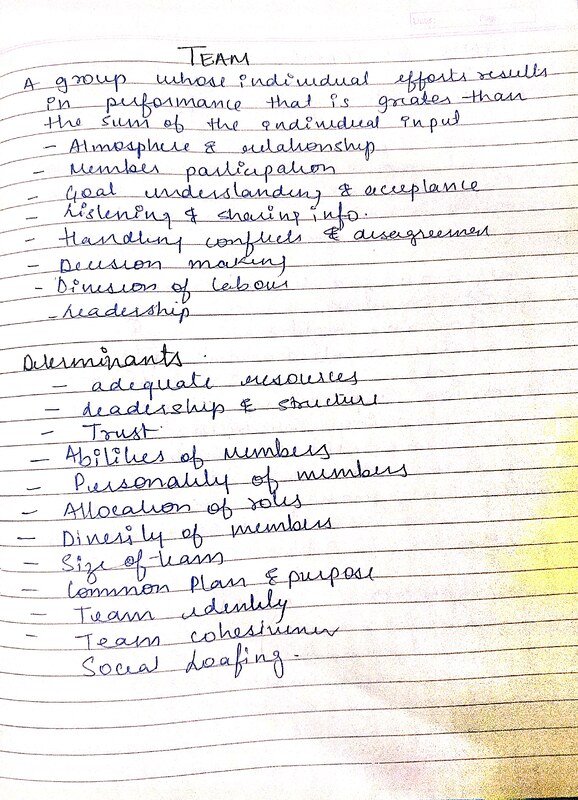 TEAM
A group whose individual efforts results
in performance that is greater than
the sum of the individual input
- Atmosphere & relationship
- Member participation
- Goal understanding & acceptance
- Listening & sharing info.
- Handling conflicts & disagreemen
- Decision making
- Division of labour
- Leadership
Determinants.
- adequate resources
- Leadership & structure
- Trust.
- Abilities of Members
- Personality of members
- Allocation of roles
- Diversity of members
- Size of team
- Common Plan & purpose
- Team identity
- Team cohesiveness
Social Loafing.